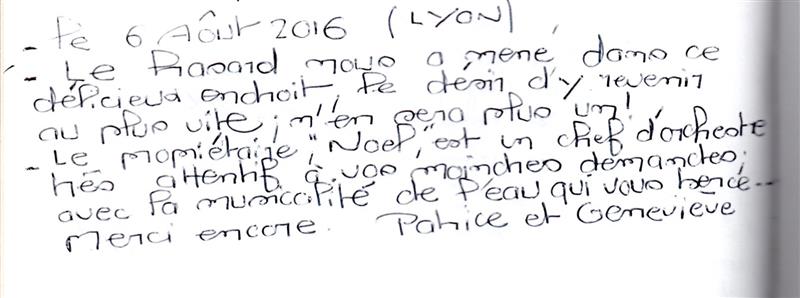 - Le 6 Août 2016 (LYON)
- Le Hasard nous a mené, dans ce
délicieux endroit, le désir d'y revenir
au plus vite, n'en sera plus un!
- Le propriétaire "Noel", est un chef d'orchestre
très attentif, à vos moindres demandes,
avec la musicalité de l'eau qui vous berce...
Merci encore. Patrice et Geneviève